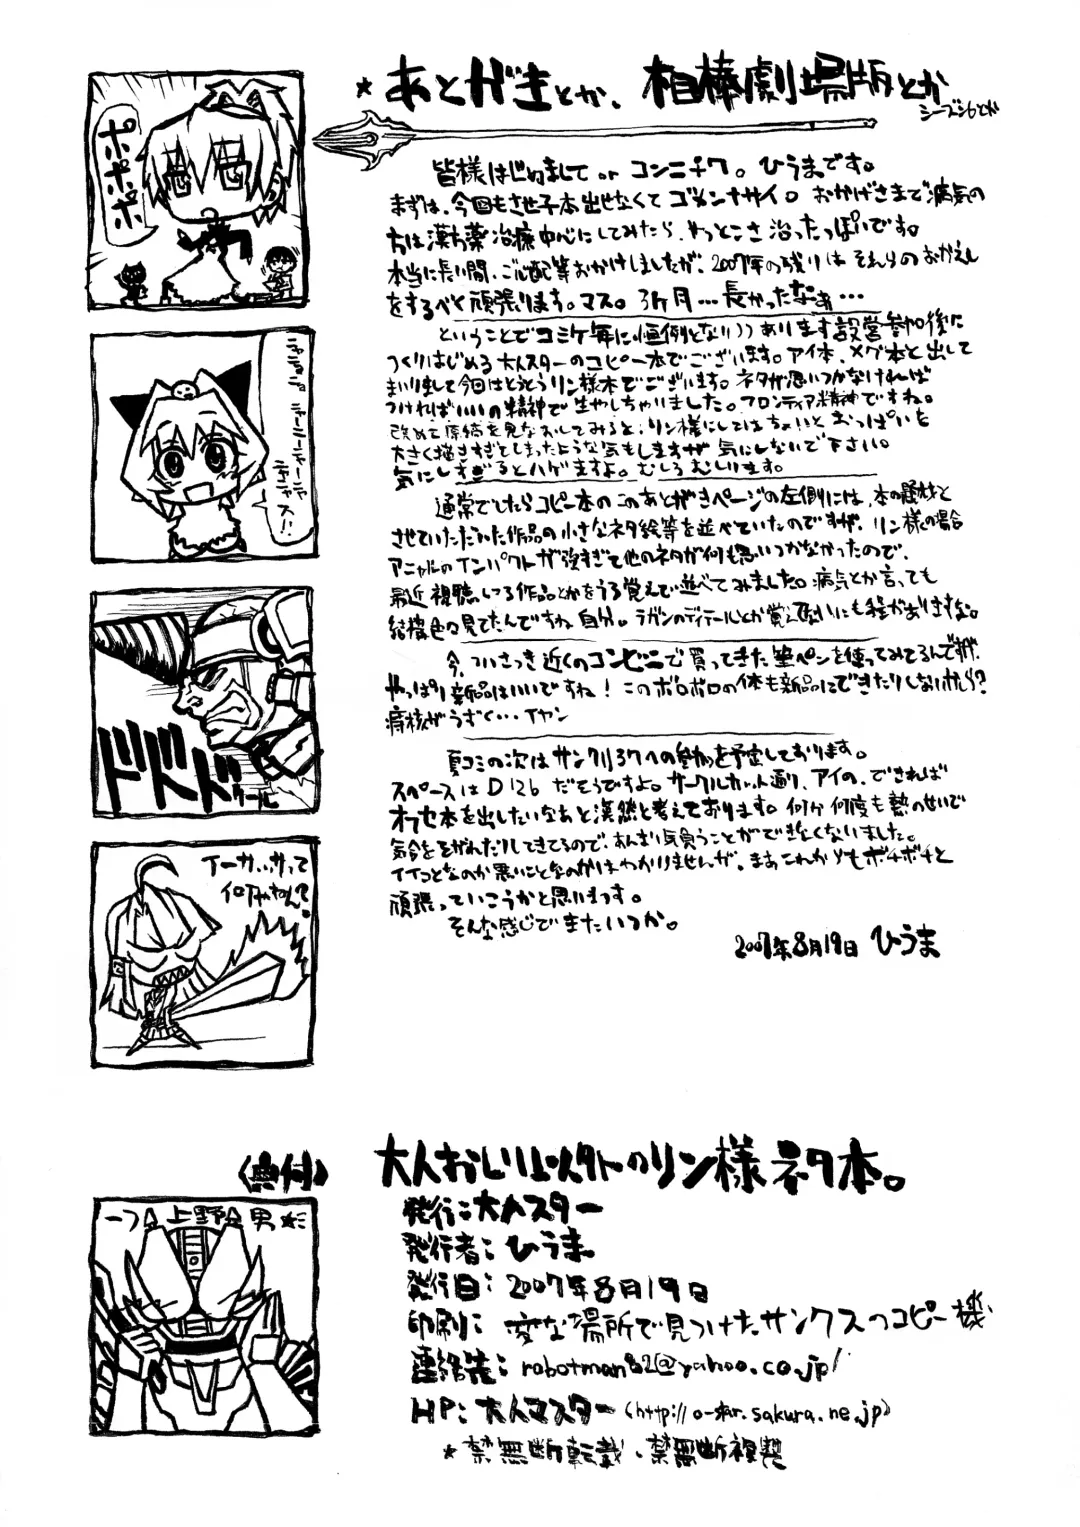 ★あとがきとか、相棒劇場版とか
シーズン6とか
皆様はじめまして or コンニチワ。ひうまです。
まずは、今回もさせ子本出せなくてゴメンナサイ。おかげさまで病気の
方は漢方薬治療中心にしてみたら、やっとこさ治ったっぽいです。
本当に長い間、ご心配等おかけしましたが、2007年の残りはそれらのおかえし
をするべく頑張ります。マス。3ヶ月…長かったなぁ…
ということでコミケ毎に恒例となりつつあります設営参加後に
つくりはじめる大人スターのコピー本でございます。アイ本、メグ本と出して
まいりまして今回はとうとうリン様本でございます。ネタが思いつかなければ
つければいいの精神で生やしちゃいました。フロンティア精神ですね。
改めて原稿を見なおしてみると、リン様にしてはちょいとおっぱいを
大きく描きすぎてしまったような気もしますが気にしないで下さい。
気にしすぎるとハゲますよ。むしろむしります。
通常でしたらコピー本のこのあとがきページの左側には、本の題材と
させていただいた作品の小さなネタ絵等を並べていたのですが、リン様の場合
アニャルのインパクトが強すぎて他のネタが何も思いつかなかったので、
最近視聴してる作品とかをうろ覚えで並べてみました。病気とか言っても
結構色々見てたんですね自分。ラガンのディテールとか覚えてないにも程がありますな。
今、ついさっき近くのコンビニで買ってきた筆ペンを使ってみてるんですが、
やっぱり新品はいいですね！このボロボロの体も新品にできたりしないかしら？
痔核がうずく…イヤン
夏コミの次はサンクリ37への参加を予定しております。
スペースはD12bだそうですよ。サークルカット通り、アイの、できれば
オフセ本を出したいなあと漠然と考えております。何分何度も熱のせいで
気合をそがれたりしてきてるので、あんまり気負うことができなくなりました。
イイことなのか悪いことなのかはわかりませんが、まあこれからもボチボチと
頑張っていこうかと思います。
そんな感じでまたいつか。
2007年8月19日 ひうま
ポポポポ
ニャーニーニャーニャ
ニャス!!
ドドドド
ドゥール
イーサッサって
何ぞやねん?
〈奥付〉
上野
男
大人おしり以外のリン様ネタ本。
発行:大人スター
発行者:ひうま
発行日:2007年8月19日
印刷:変な場所で見つけたサンクスのコピー機
連絡先:robotman82@yahoo.co.jp
HP:大人マスター〈http://o-star.sakura.ne.jp〉
★禁無断転載、禁無断複製